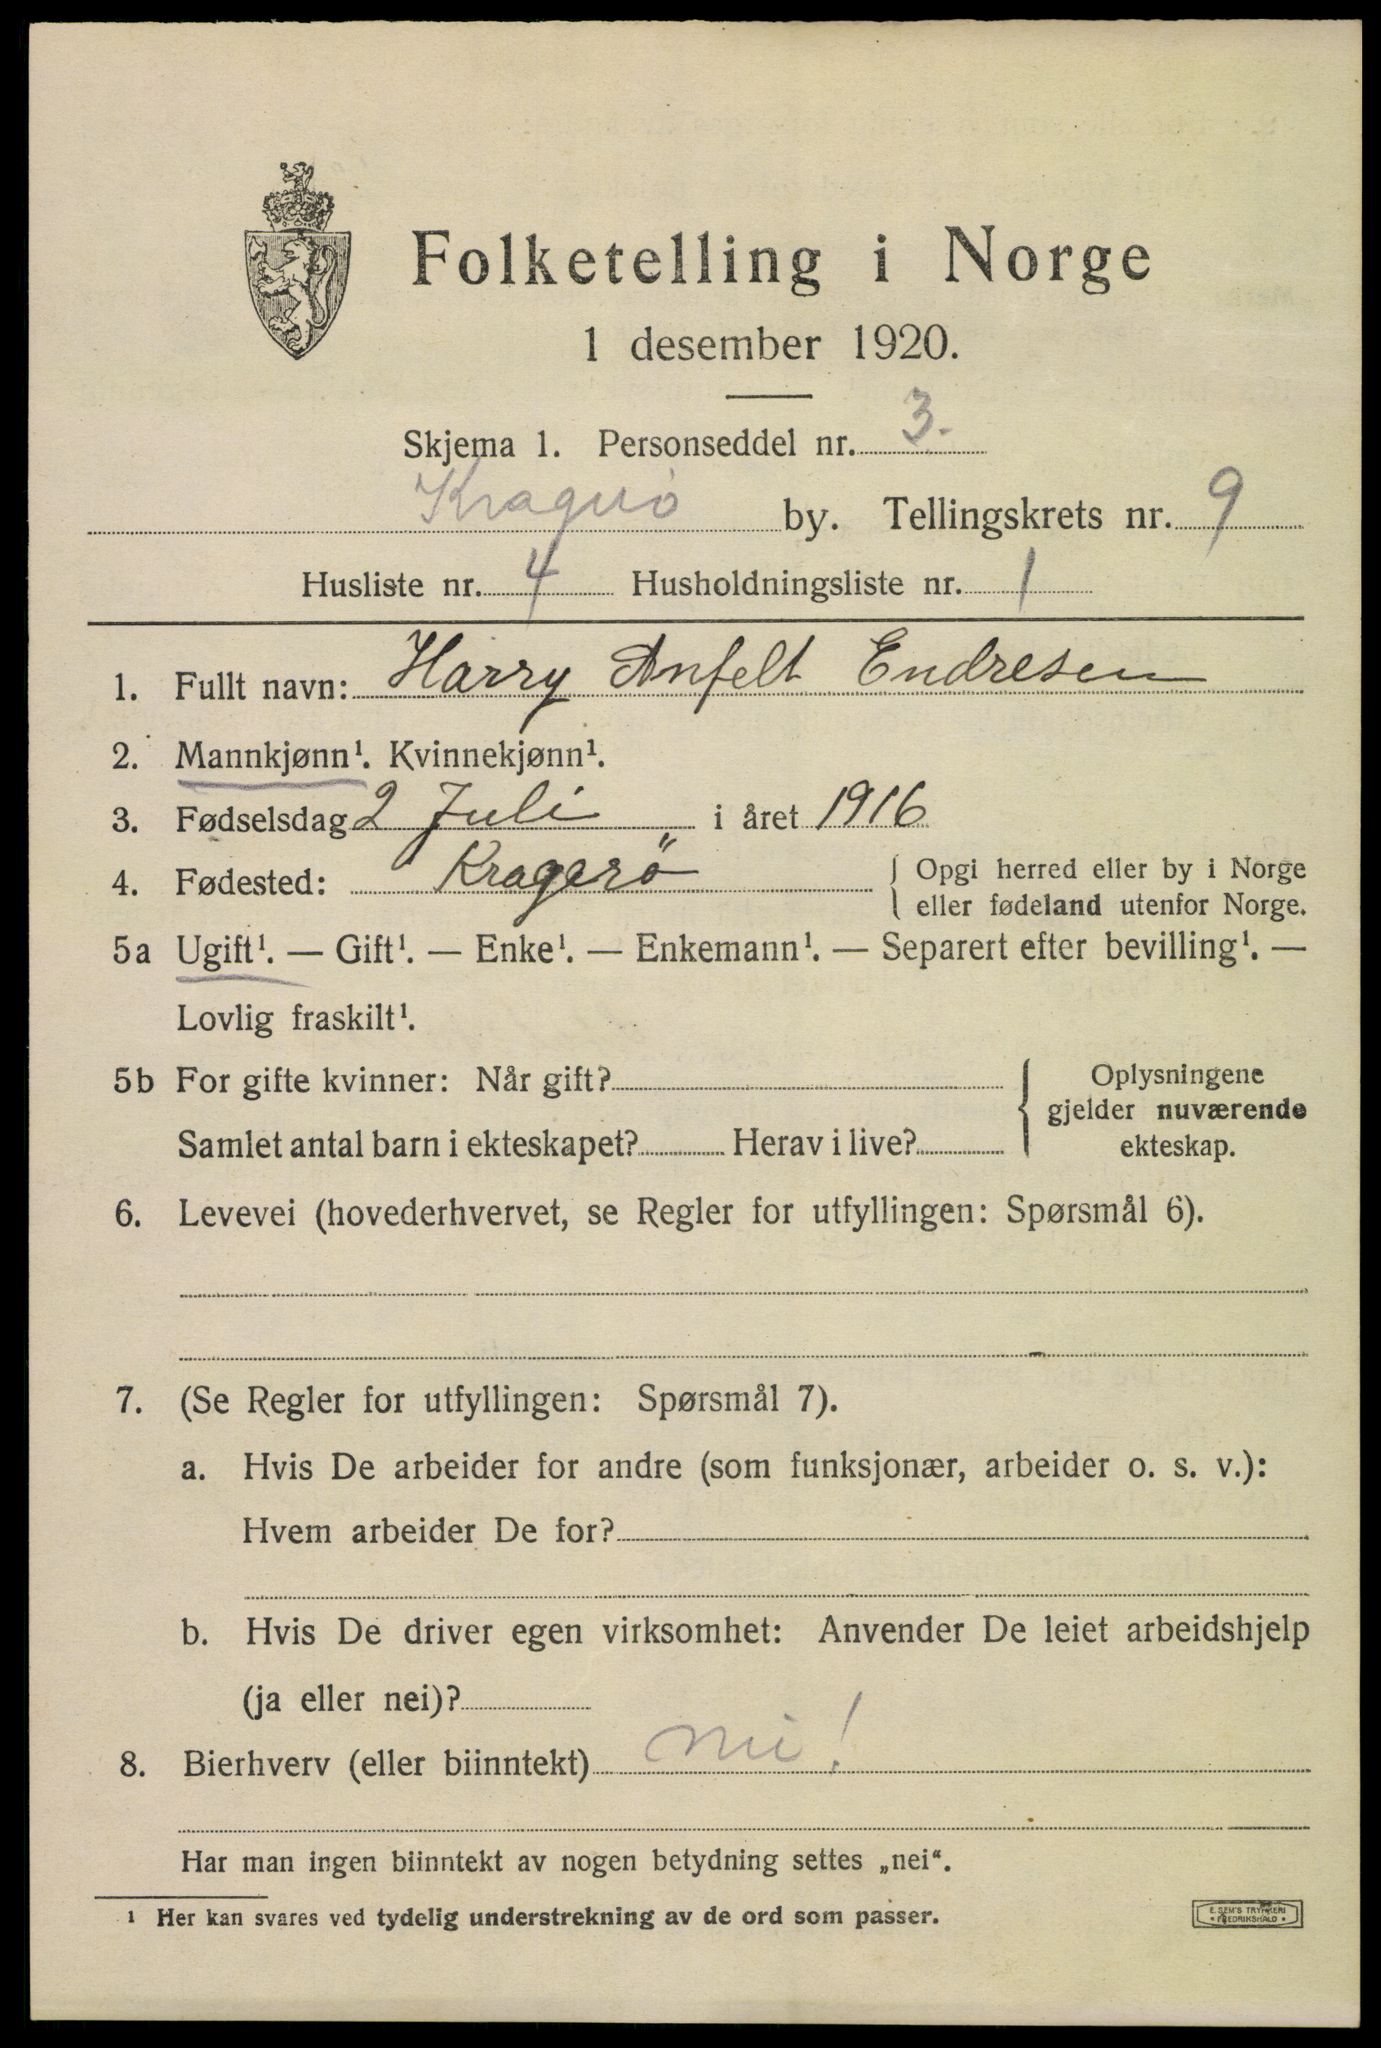 Folketelling i Norge
1 desember 1920.
Skjema 1. Personseddel nr. 3.
Kragerö by. Tellingskrets nr. 9
Husliste nr. 4 Husholdningsliste nr. 1
1. Fullt navn: Harry Anfelt Endresen
2. Mannkjønn¹. Kvinnekjønn¹.
3. Fødselsdag 2 Juli i året 1916
4. Fødested: Kragerö { Opgi herred eller by i Norge
eller fødeland utenfor Norge.
5a Ugift¹. — Gift¹. — Enke¹. — Enkemann¹. — Separert efter bevilling¹. —
Lovlig fraskilt¹.
5b For gifte kvinner: Når gift? { Oplysningene
gjelder nuværende
Samlet antal barn i ekteskapet? Herav i live? ekteskap.
6. Levevei (hovederhvervet, se Regler for utfyllingen: Spørsmål 6).
7. (Se Regler for utfyllingen: Spørsmål 7).
a. Hvis De arbeider for andre (som funksjonær, arbeider o. s. v.):
Hvem arbeider De for?
b. Hvis De driver egen virksomhet: Anvender De leiet arbeidshjelp
(ja eller nei)?
8. Bierhverv (eller biinntekt) nei!
Har man ingen biinntekt av nogen betydning settes „nei“.
¹ Her kan svares ved tydelig understrekning av de ord som passer.
E. SEM'S TRYKKERI
• FREDRIKSHALD •